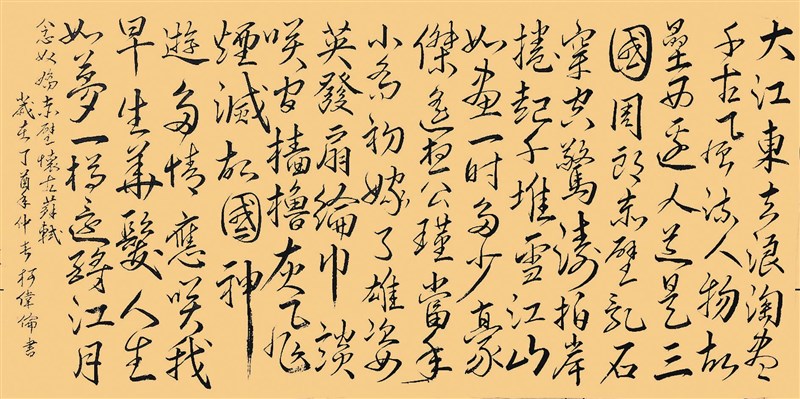 大江東去浪淘盡
千古風流人物故
壘西邊人道是三
國周郎赤壁亂石
穿空驚濤拍岸
捲起千堆雪江山
如畫一時多少豪
傑遙想公瑾當年
小喬初嫁了雄姿
英發扇綸巾談
咲間檣櫓灰飛
煙滅故國神
遊多情應咲我
早生華髮人生
如夢一樽還酹江月
念奴嬌赤壁懷古蘇軾
歲在丁酉年仲春柯偉倫書